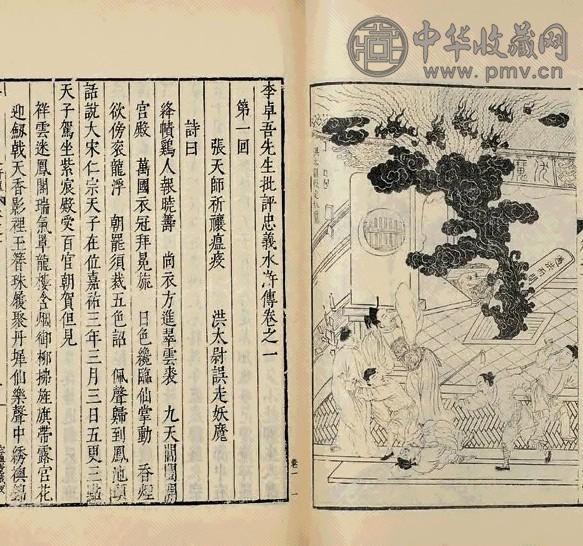 中华收藏网
www.pmv.cn
伏魔
遇洪而開
李卓吾先生批評忠義水滸傳卷之一
第一回
張天師祈禳瘟疫　洪太尉誤走妖魔
詩曰
絳幘鷄人報曉籌　尚衣方進翠雲裘　九天閶闔開
宮殿　萬國衣冠拜冕旒　日色纔臨仙掌動　香煙
欲傍衮龍浮　朝罷須裁五色詔　佩聲歸到鳳池頭
話說大宋仁宗天子在位嘉祐三年三月三日五更三點
天子駕坐紫宸殿受百官朝賀但見
祥雲迷鳳閣瑞氣罩龍樓含烟御柳拂旌旗帶露宮花
迎劍戟天香影裡玉簪珠履聚丹墀仙樂聲中繡襖錦
卷一